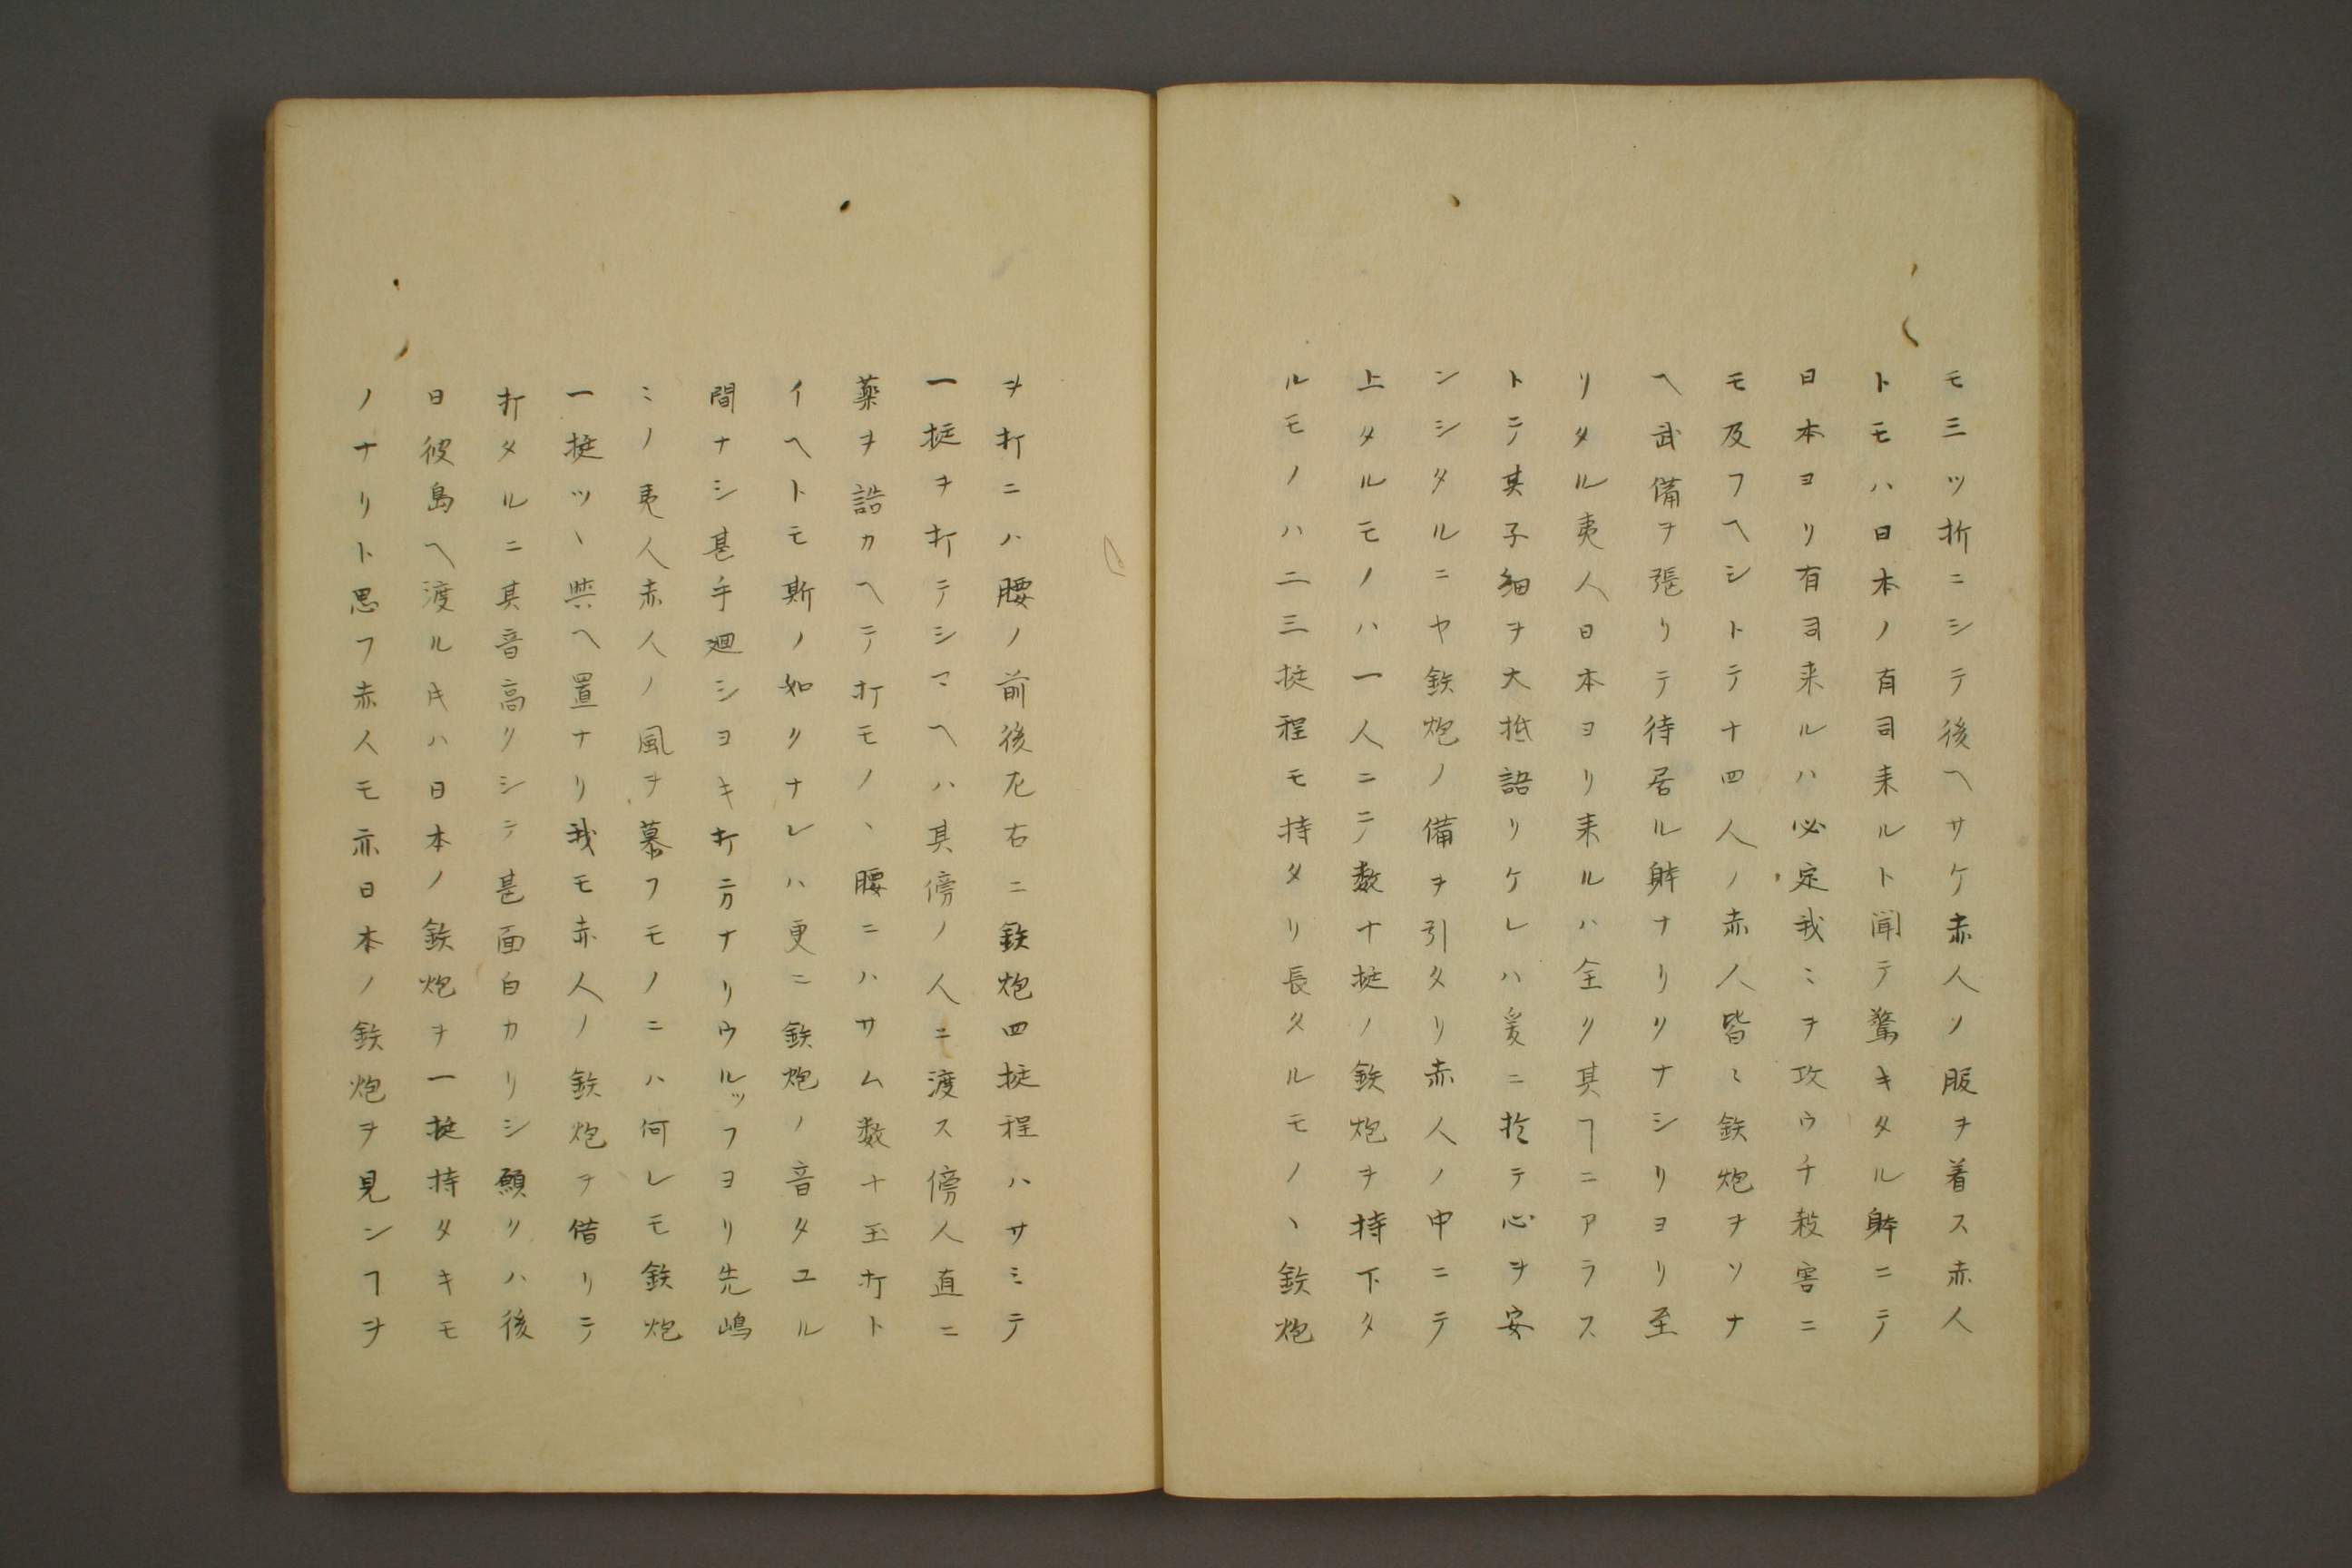 モ三ツ折ニシテ後ヘサケ赤人ノ服ヲ着ス赤人
トモハ日本ノ有司来ルト聞テ驚キタル躰ニテ
日本ヨリ有司来ルハ必定我ミヲ攻ウチ殺害ニ
モ及フヘシトテナ四人ノ赤人皆〻鉄炮ヲソナ
ヘ武備ヲ張リテ待居ル躰ナリリナシリヨリ至
リタル夷人日本ヨリ来ルハ全ク其ヿニアラス
トテ其子細ヲ大抵語リケレハ爰ニ於テ心ヲ安
ンシタルニヤ鉄炮ノ備ヲ引タリ赤人ノ中ニテ
上タルモノハ一人ニテ数十挺ノ鉄炮ヲ持下タ
ルモノハ二三挺程モ持タリ長タルモノヽ鉄炮
ヲ打ニハ腰ノ前後左右ニ鉄炮四挺程ハサミテ
一挺ヲ打テシマヘハ其傍ノ人ニ渡ス傍人直ニ
薬ヲ詰カヘテ打モノヽ腰ニハサム数十玉打ト
イヘトモ斯ノ如クナレハ更ニ鉄炮ノ音タユル
間ナシ甚手廻シヨキ打方ナリウルッフヨリ先嶋
ミノ夷人赤人ノ風ヲ慕フモノニハ何レモ鉄炮
一挺ツヽ與ヘ置ナリ我モ赤人ノ鉄炮ヲ借リテ
打タルニ其音高クシテ甚面白カリシ願クハ後
日彼島ヘ渡ル𪜈ハ日本ノ鉄炮ヲ一挺持タキモ
ノナリト思フ赤人モ亦日本ノ鉄炮ヲ見ンヿヲ